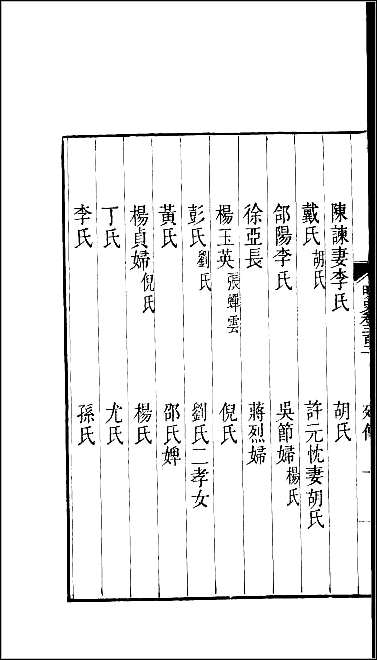 明史卷三百二
陳諫妻李氏 胡氏
戴氏 胡氏 許元忱妻胡氏
郃陽李氏 吳節婦 楊氏
徐亞長 蔣烈婦
楊玉英 張蟬雲 倪氏
彭氏 劉氏 劉氏二孝女
黃氏 邵氏婢
楊貞婦 倪氏 楊氏
丁氏 尤氏
李氏 孫氏